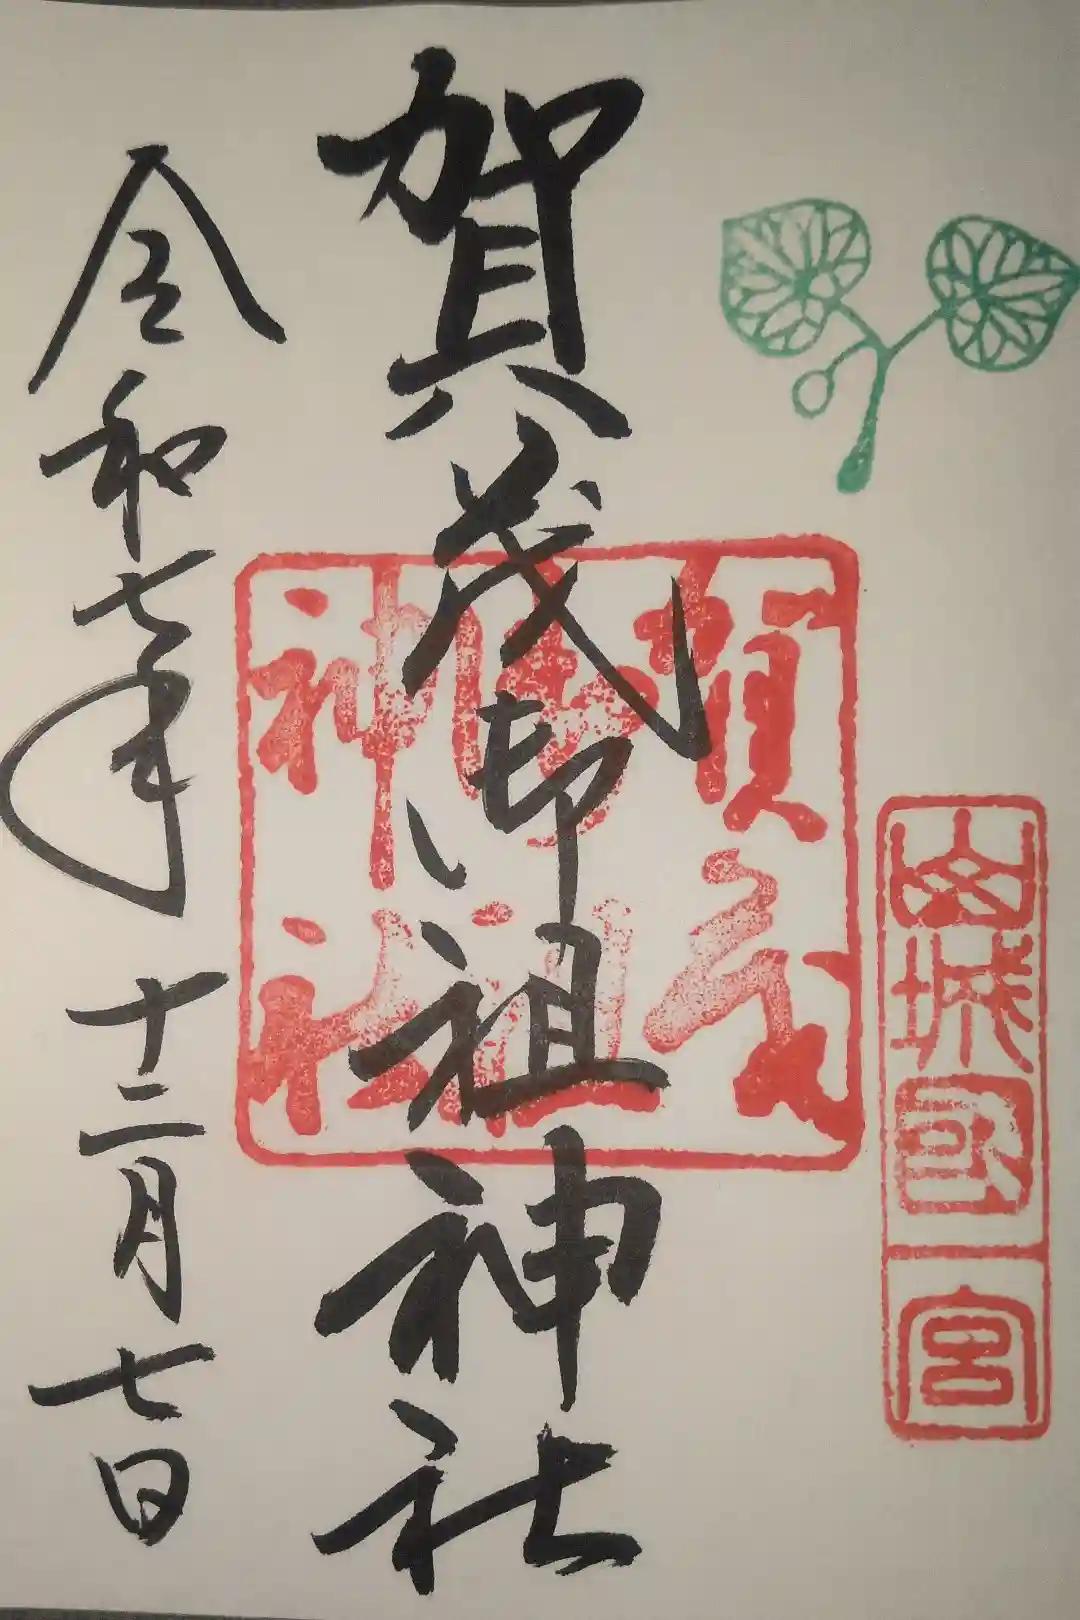 山城國一宮
賀茂御祖神社
賀茂御祖神社
令和七年十二月七日